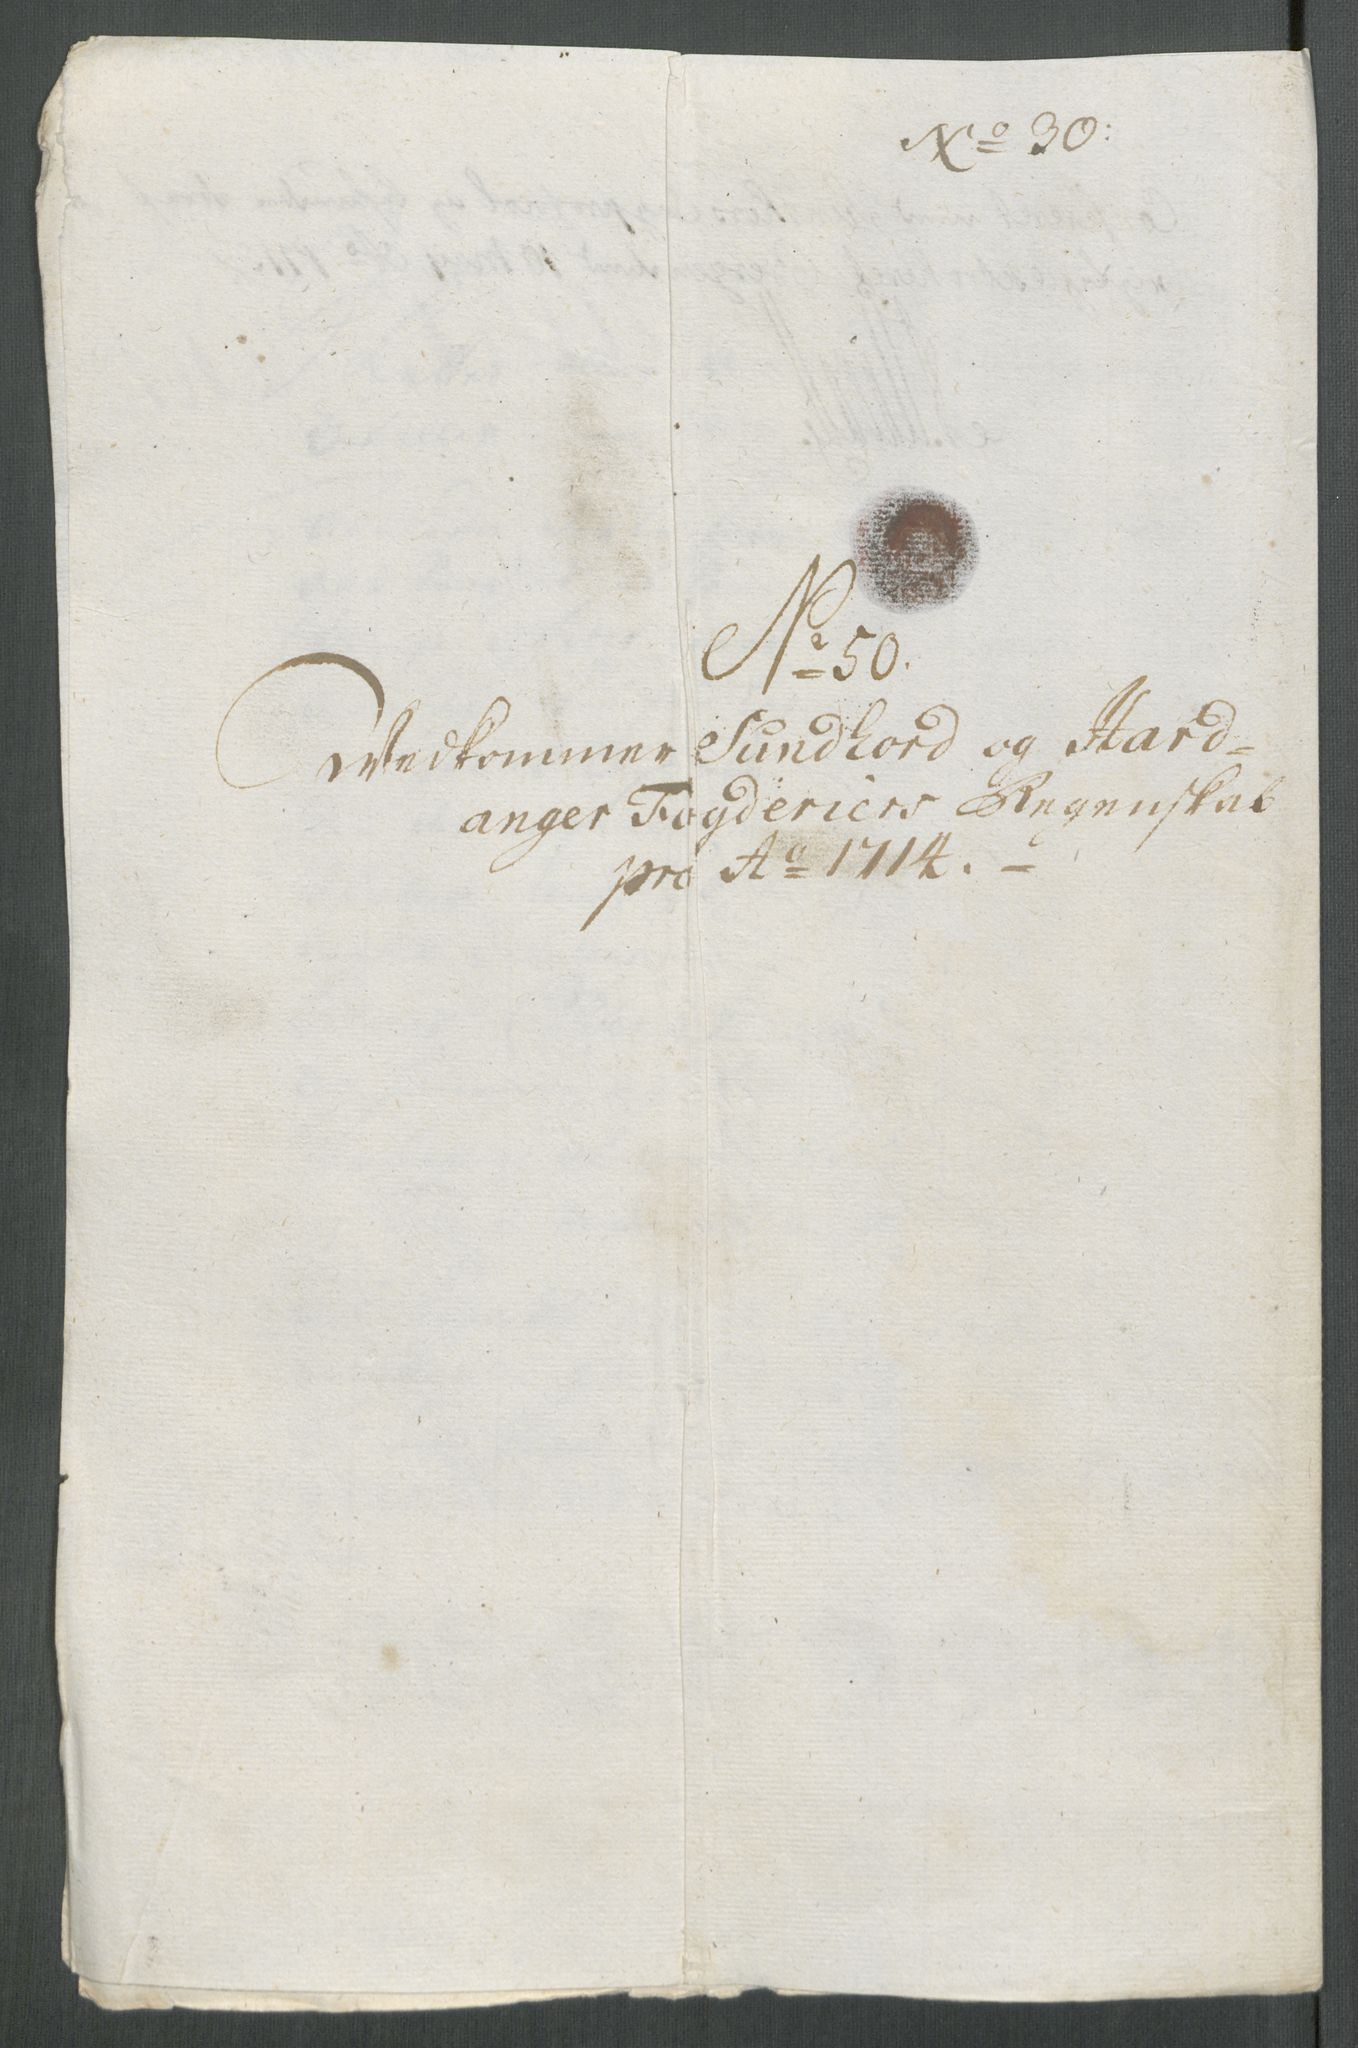 No 30:
No 50.
Vedkommer Sundhord og Hard-
anger Fogderiers Regenskab
pro Ao 1714.